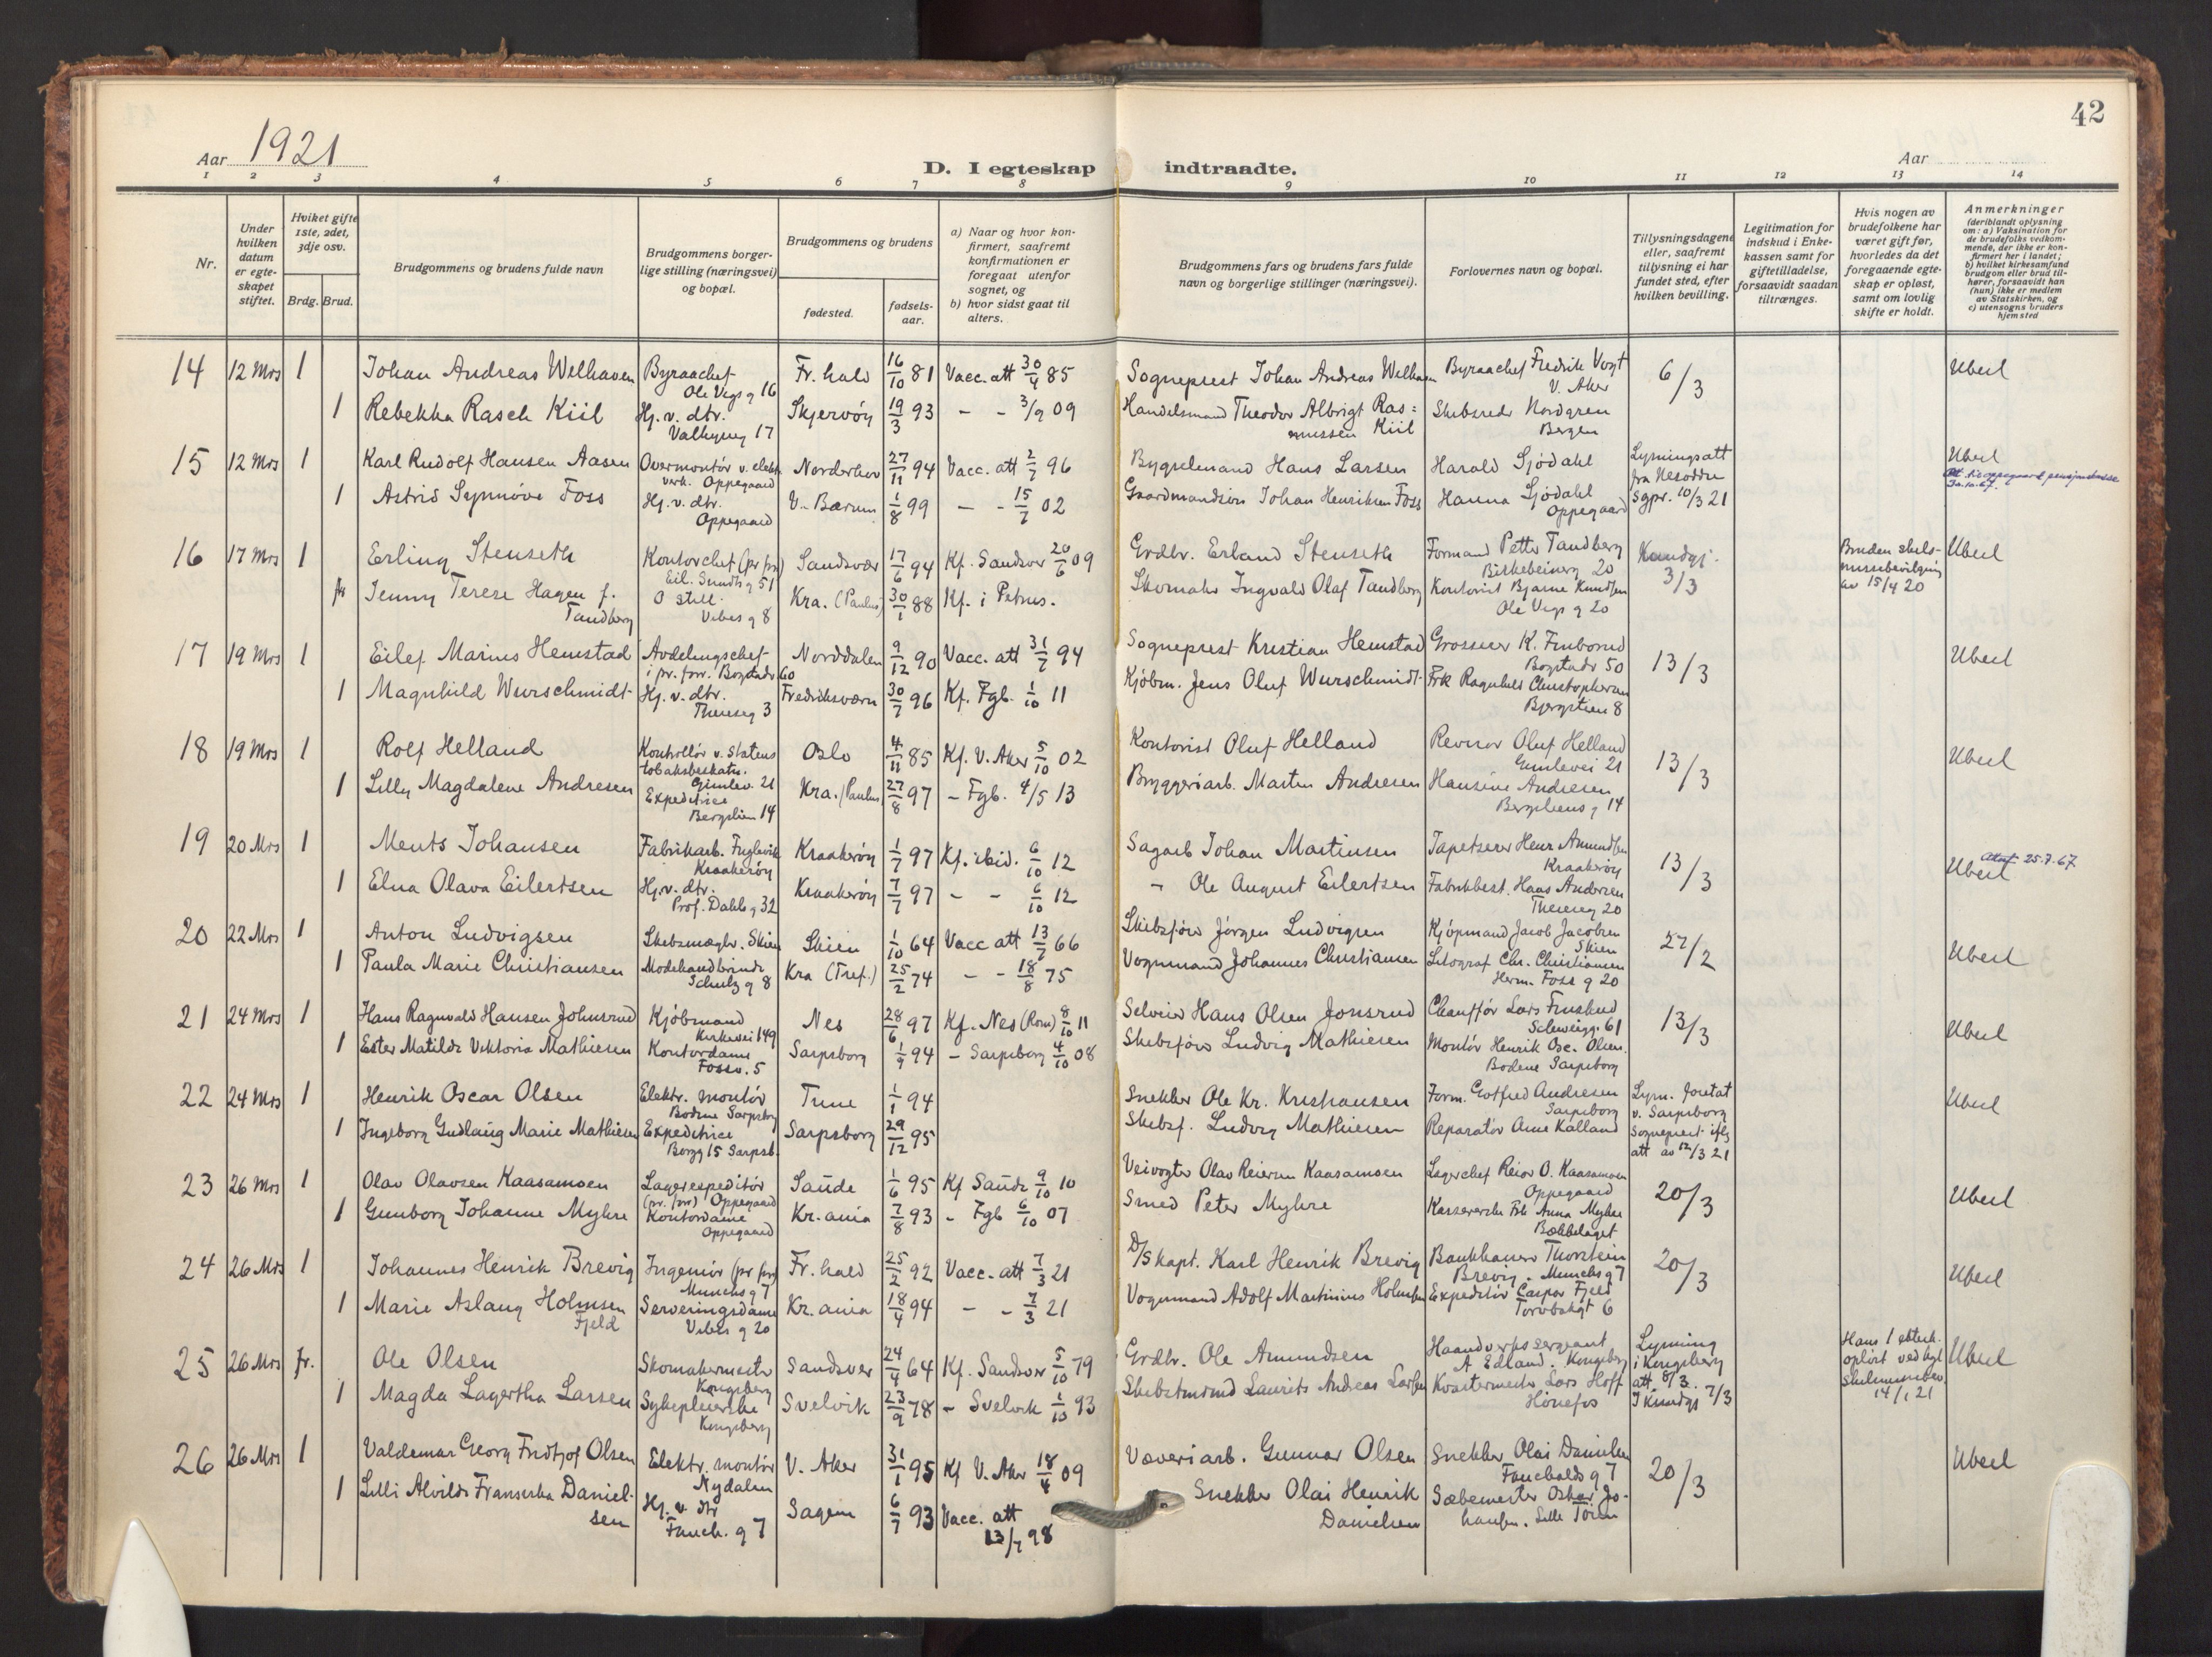 42
Aar 1921
D. I egteskap indtraadte.
Aar
1 2 3 4 5 6 7 8 9 10 11 12 13 14
Nr.
Under hvilken datum er egteskapet stiftet.
Hviket gifte 1ste, 2det, 3dje osv.
Brdg. Brud.
Brudgommens og brudens fulde navn
Brudgommens borgerlige stilling (næringsvei) og bopæl.
Brudgommens og brudens
fødested.
fødselsaar.
a) Naar og hvor konfirmert, saafremt konfirmationen er foregaat utenfor sognet, og
b) hvor sidst gaat til alters.
Brudgommens fars og brudens fars fulde navn og borgerlige stillinger (næringsvei).
Forlovernes navn og bopæl.
Tillysningsdagene eller, saafremt tillysning ei har fundet sted, efter hvilken bevilling.
Legitimation for indskud i Enkekassen samt for giftetilladelse, forsaavidt saadan tiltrænges.
Hvis nogen av brudefolkene har været gift før, hvorledes da det foregaaende egteskap er opløst, samt om lovlig skifte er holdt.
Anmerkninger (deriblandt oplysning om: a) Vaksination for de brudefolks vedkommende, der ikke er konfirmert her i landet; b) hvilket kirkesamfund brudgom eller brud tilhører, forsaavidt han (hun) ikke er medlem av Statskirken, og c) utensogns bruders hjemsted
14 12 Mrs 1 Johan Andreas Welhaven Byraachef Ole Vigs g 16 Fr.hald 16/10 81 Vacc. att 30/4 85 Sogneprest Johan Andreas Welhaven Byraachef Fredrik Vogt V. Aker 6/3 Ubesl
1 Rebekka Rasch Kiil Hj. v. dtr. Valkyrieg 17 Skjervøy 19/3 93 - - 3/9 09 Handelsmand Theodor Albrigt Rasmussen Kiil Skibsreder Nordgren Bergen
15 12 Mrs 1 Karl Rudolf Hansen Aasen Overmontør v. elektr. verk. Oppegaard Norderhov 27/11 94 Vacc. att 2/7 96 Bygselmand Hans Larsen Harald Sjødahl Lysningsatt fra Nesodden sgpr. 10/3 21 Ubesl
1 Astrid Synnøve Foss Hj. v. dtr. Oppegaard V. Bærum 1/8 99 - - 15/7 02 Gaardmandsøn Johan Henriksen Foss Hanna Sjødahl Oppegaard
16 17 Mrs 1 Erling Stenseth Kontorchef (pr for) Eil. Sundts g 51 Sandsvær 17/6 94 Kf. Sandsver 20/6 09 Grdbr. Erland Stenseth Formand Petter Tandberg Birkebeinerg 20 Kundgj. 3/3 Bruden skilsmissebevilgning av 15/4 20 Ubesl
fr Jenny Terese Hagen f. Tandberg O still. Vibes g 8 Kra. (Paulus) 30/1 88 Kf. i Petrus. Skomaker Ingvald Olaf Tandberg Kontorist Bjarne Knudsen Ole Vigs g 20
17 19 Mrs 1 Eilef Marius Hemstad Avdelingschef i pr. forr. Bogstadv 60 Norddalen 9/12 90 Vacc. att 31/7 94 Sogneprest Kristian Hemstad Grosserer K. Finborud Bogstadv 50 13/3 Ubesl
1 Magnhild Wurschmidt Hj. v. dtr. Thereseg 3 Fredriksværn 30/7 96 Kf. Fgb. 1/10 11 Kjøbm. Jens Oluf Wurschmidt Frk Ragnhild Christophersen Bjergstien 8
18 19 Mrs 1 Rolf Helland Kontrollør v. Statens tobaksbeskatn. Gimlev. 21 Oslo 4/11 85 Kf. V. Aker 5/10 02 Kontorist Oluf Helland Revisor Oluf Helland Gimlevei 21 13/3 Ubesl
1 Lilly Magdalene Andresen Expeditrice Bergslien 14 Kra. (Paulus) 27/8 97 - Fgb. 4/5 13 Bryggeriarb. Martin Andresen Hansine Andresen Bergsliens g 14
19 20 Mrs 1 Ments Johansen Fabrikarb. Fuglevik Kraakerøy Kraakerøy 1/7 97 Kf. ibid. 6/10 12 Sagarb Johan Martinsen Tapetserer Henr Amundsen Kraakerøy 13/3 Ubesl 25.7.67
1 Elna Olava Eilertsen Hj. v. dtr. Prof. Dahls g 32 Kraakerøy 7/7 97 - - 6/10 12 - Ole August Eilertsen Fabrikbest. Hans Andersen Thereseg 20
20 22 Mrs 1 Anton Ludvigsen Skibsmægler. Skien Skien 1/10 64 Vacc att 13/7 66 Skibsfører Jørgen Ludvigsen Kjøpmand Jacob Jacobsen Skien 27/2 Ubesl
1 Paula Marie Christiansen Modehandlerinde Schultz g 8 Kra (Tref.) 25/2 74 - - 18/8 75 Vognmand Johannes Christiansen Litograf Chr. Christiansen Herm. Foss g 20
21 24 Mrs 1 Hans Ragnvald Hansen Johnsrud Kjøbmand Kirkevei 149 Nes 28/6 97 Kf. Nes (Rom) 8/10 11 Selveier Hans Olsen Jonsrud Chauffør Lars Fruslund Schweigg. 61 13/3 Ubesl
1 Ester Matilde Viktoria Mathiesen Kontordame Fossv. 5 Sarpsborg 1/9 94 - Sarpsborg 4/10 08 Skibsfører Ludvig Mathiesen Montør Henrik Osc. Olsen. Bodene Sarpsborg
22 24 Mrs 1 Henrik Oscar Olsen Elektr. montør Bodene Sarpsborg Tune 1/1 94 Snekker Ole Kr. Kristiansen Form. Gotfred Andresen Sarpsborg Lysn. foretat v. Sarpsborg sogneprest iflg att av 12/3 21 Ubesl
1 Ingeborg Gudlaug Marie Mathiesen Expeditrice Borgg 15 Sarpsb. Sarpsborg 29/12 95 Skibsf. Ludvig Mathiesen Reparatør Arne Kalland
23 26 Mrs 1 Olav Olavsen Kaasamoen Lagerexpeditør (pr. forr) Oppegaard Saude 1/6 95 Kf Saude 9/10 10 Veivogter Olav Reiersen Kaasamoen Lagerchef Reior O. Kaasamoen Oppegaard 20/3 Ubesl
1 Gunborg Johanne Myhre Kontordame Oppegaard Kr.ania 7/8 93 - Fgb 6/10 07 Smed Peter Myhre Kassererske Frk Anna Myhre Bækkelaget
24 26 Mrs 1 Johannes Henrik Brevig Ingeniør (pr forr) Munchs g 7 Fr.hald 25/2 92 Vacc. att 7/3 21 D/Skapt. Karl Henrik Brevig Bankkasserer Thorstein Brevig. Munchs g 7 20/3 Ubesl
1 Marie Aslaug Holmsen Fjeld Serveringsdame Vibes g 20 Kr.ania 18/4 94 - - 7/3 21 Vognmand Adolf Martinius Holmsen Expeditør Caspar Fjeld Torvbakgt 6
25 26 Mrs fr. Ole Olsen Skomakermester Kongsberg Sandsver 24/4 64 Kf. Sandsver 5/10 79 Grdbr. Ole Amundsen Haandverkssergeant A Edland. Kongsberg Lysning i Kongsberg att. 8/3. I Kundgj 7/3 Hans 1 ektesk. opløst ved kgl skilsmissebev. 14/1 21 Ubesl
1 Magda Lagertha Larsen Sykepleierske Kongsberg Svelvik 23/9 78 - Svelvik 1/10 93 Skibstmrmd Laurits Andreas Larsen Kvartermester Lars Hoff Hønefos
26 26 Mrs 1 Valdemar Georg Fridtjof Olsen Elektr. montør Nydalen V. Aker 31/1 95 Kf V. Aker 18/4 09 Væveriarb. Gunnar Olsen Snekker Olai Danielsen Fauchalds g 7 20/3 Ubesl
1 Lilli Alvilde Franseska Danielsen Hj. v. dtr Fauch. g 7 Sagene 6/7 93 Vacc. att 13/7 98 Snekker Olai Henrik Danielsen Sæbemester Oskar Johansen. Lille Tøien